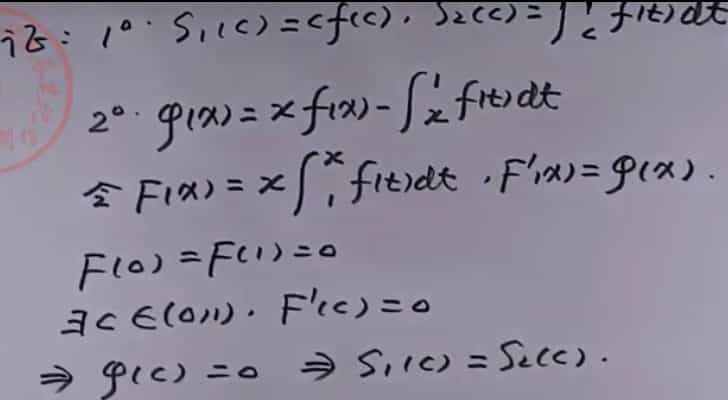 证: 1°. S₁(c) = cf(c). S₂(c) = ∫_c^1 f(t)dt
2°. φ(x) = xf(x) - ∫_x^1 f(t)dt
令 F(x) = x∫_1^x f(t)dt, F'(x) = φ(x).
F(0) = F(1) = 0
∃c∈(0,1). F'(c) = 0
⇒ φ(c) = 0 ⇒ S₁(c) = S₂(c).